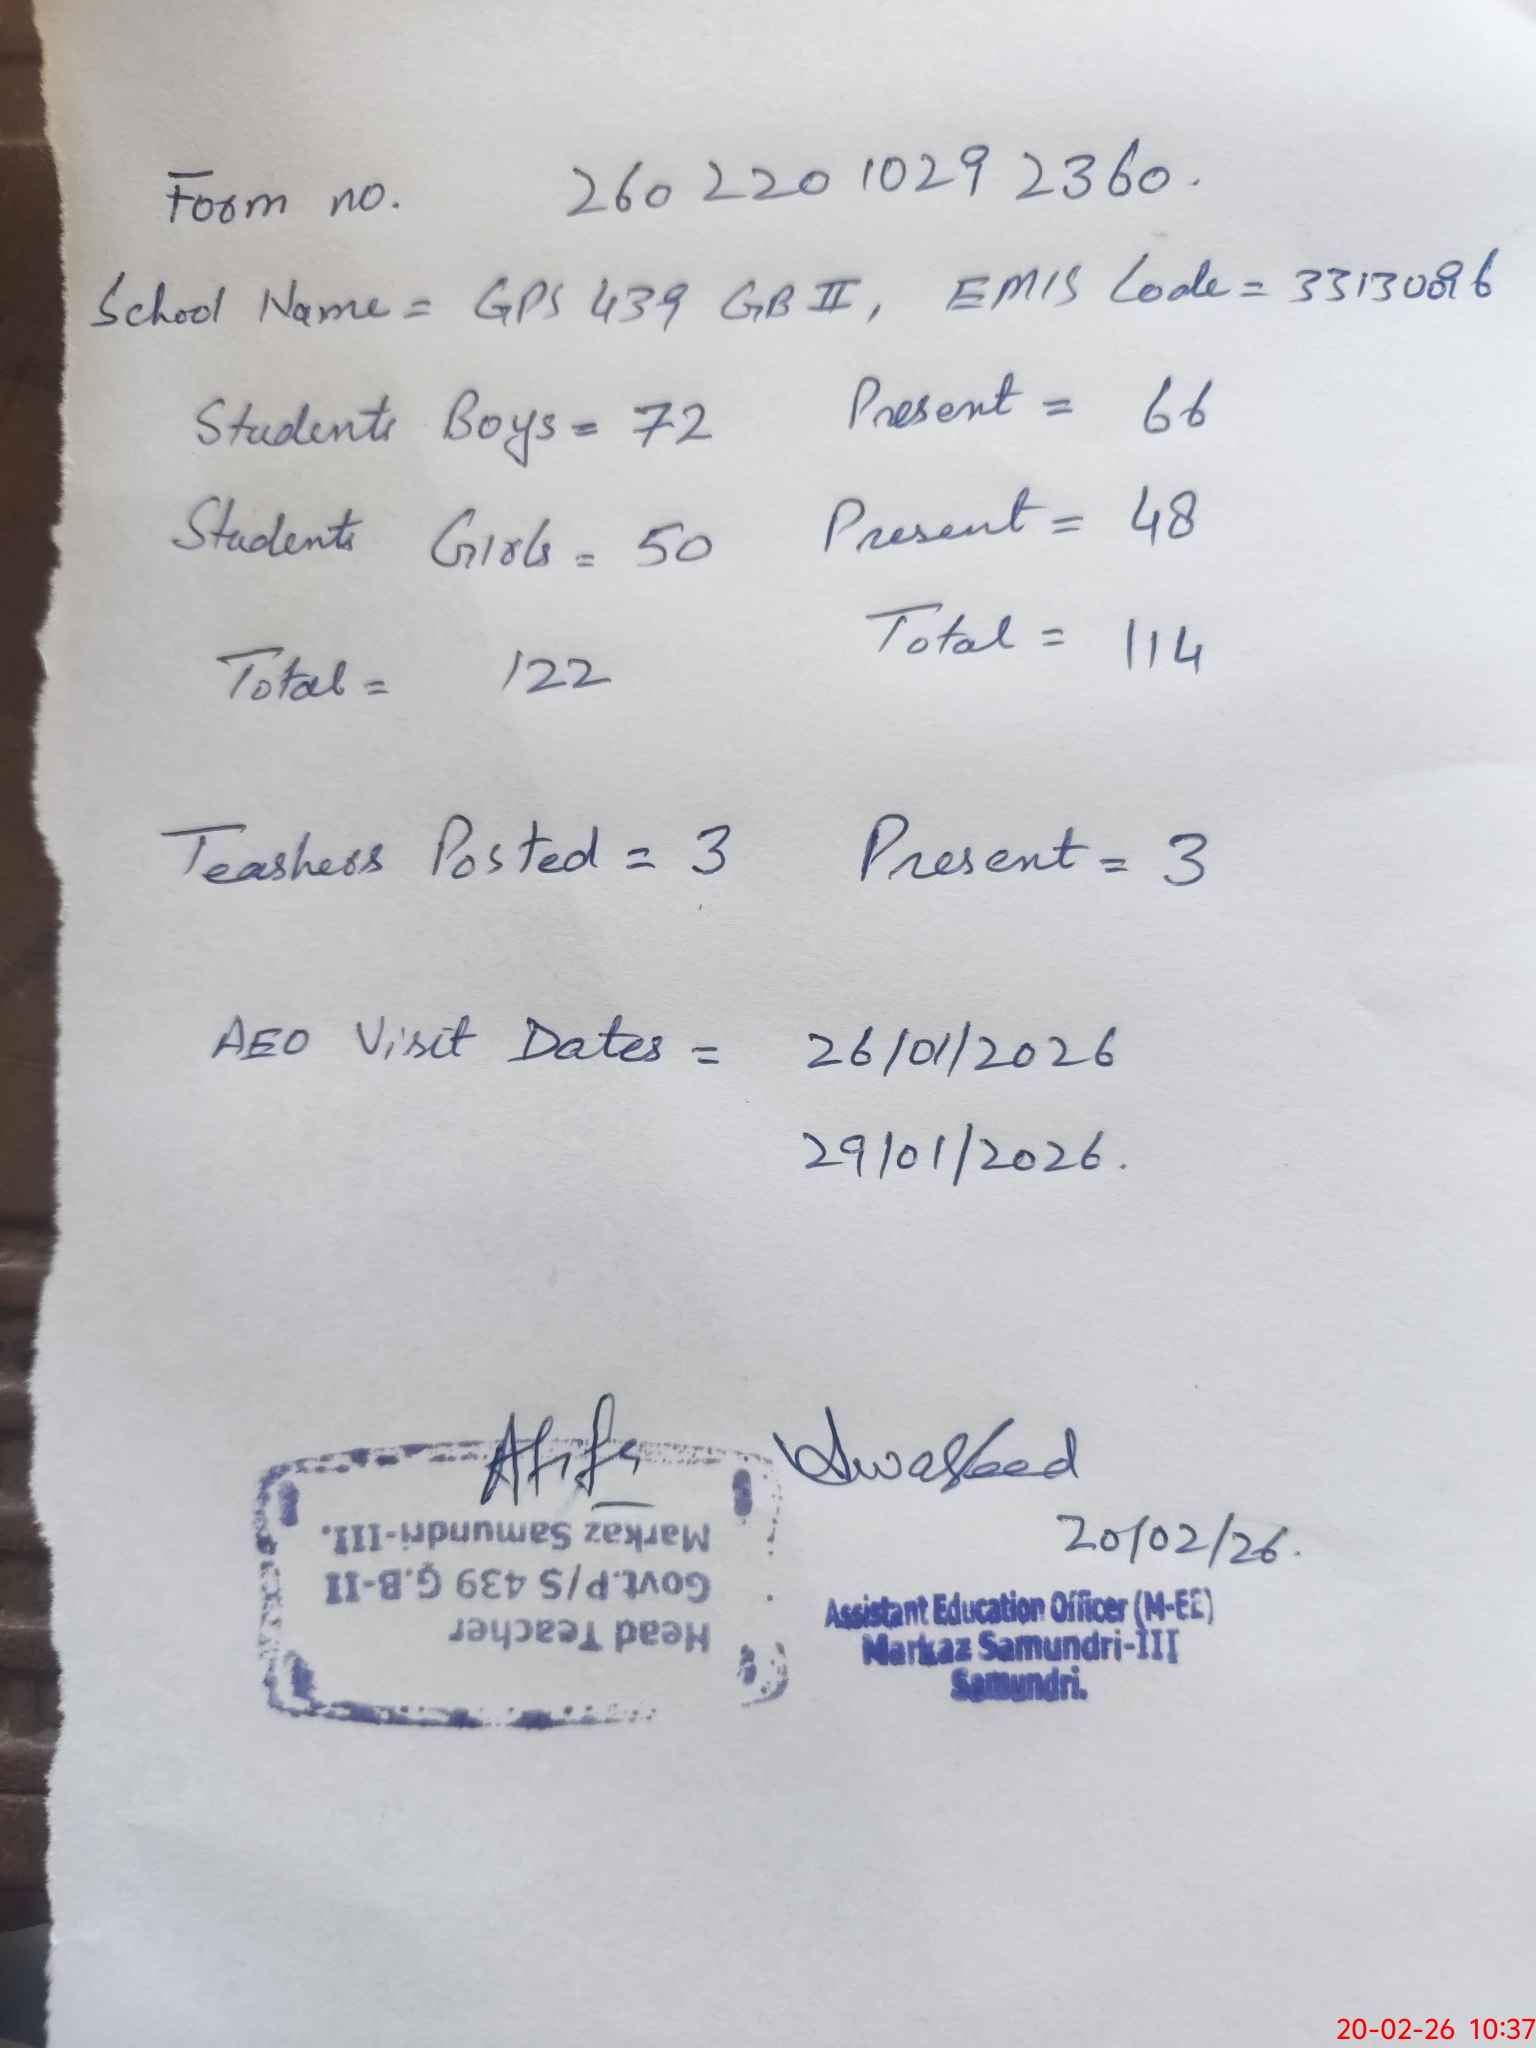 Form no. 260 220 1029 2360.
School Name = GPS 439 GB II, EMIS Code = 33130096
Students Boys = 72 Present = 66
Students Girls = 50 Present = 48
Total = 122 Total = 114
Teashers Posted = 3 Present = 3
AEO Visit Dates = 26/01/2026
29/01/2026.
Afifa
20/02/26.
Head Teacher
Govt.P/S 439 G.B-II
Markaz Samundri-III.
Assistant Education Officer (M-EE)
Markaz Samundri-III
Samundri.
20-02-26 10:37